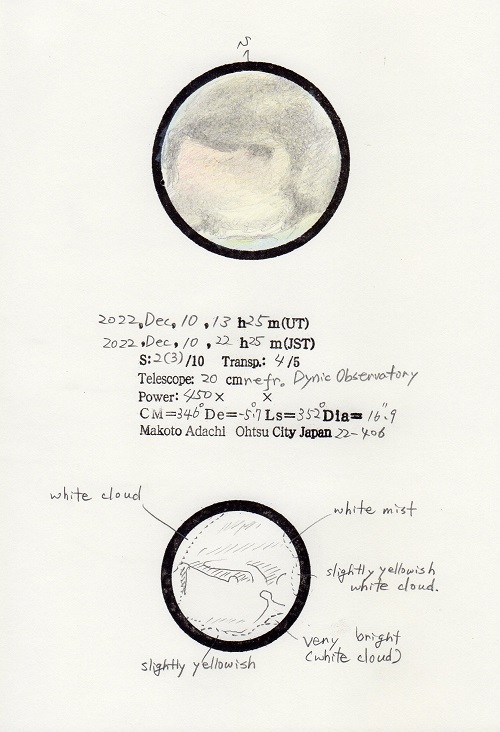 N
2022, Dec, 10, 13 h25 m(UT)
2022, Dec, 10, 22 h25 m(JST)
S:2(3)/10 Transp.: 4/5
Telescope: 20 cm refr. Dynic Observatory
Power: 450× ×
CM=346° De=-5.°7 Ls=352° Dia= 16".9
Makoto Adachi Ohtsu City Japan 22-406
white cloud
white mist
slightly yellowish
white cloud.
very bright
(white cloud)
slightly yellowish